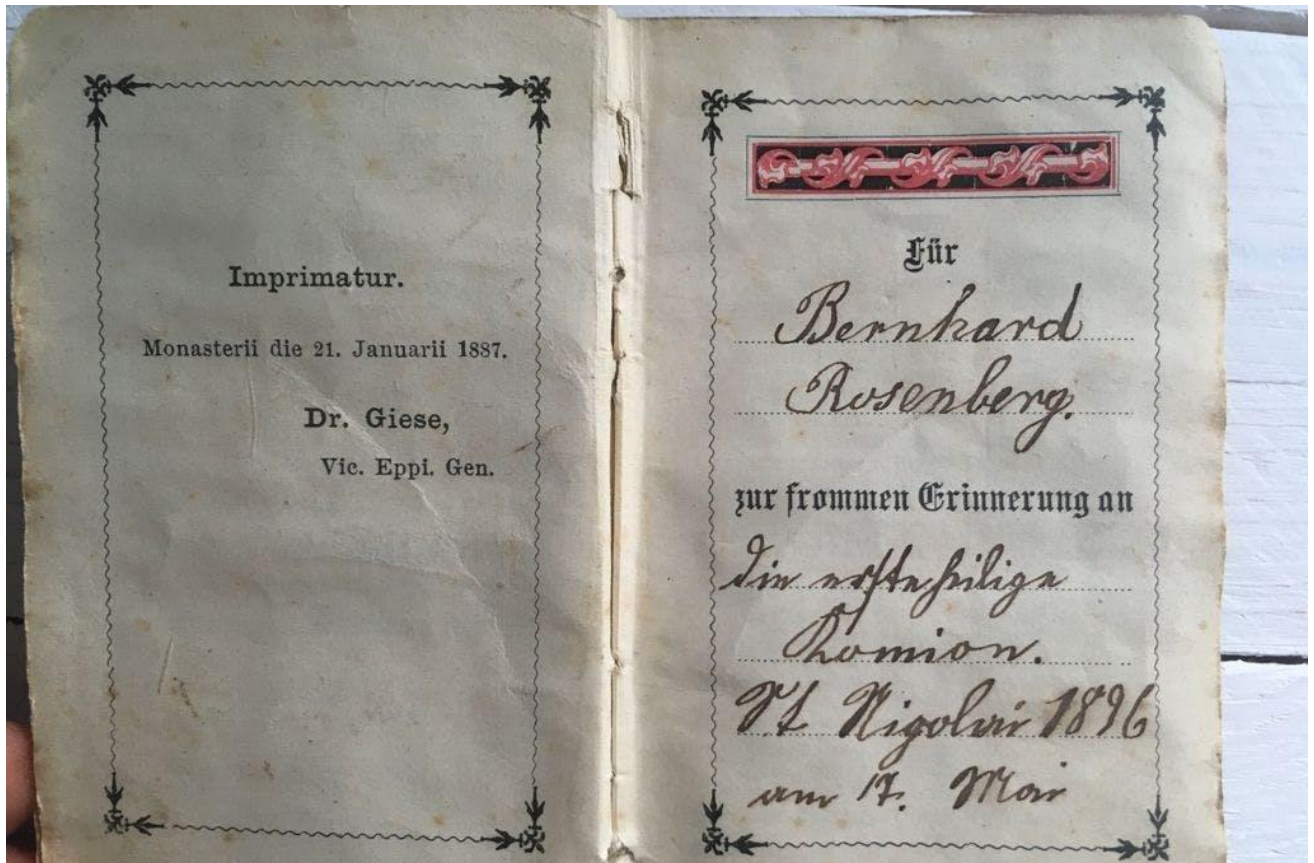 Imprimatur.
Monasterii die 21. Januarii 1887.
Dr. Giese,
Vic. Eppi. Gen.
Für
Bernhard
Rosenberg.
zur frommen Erinnerung an
die erste heilige
Komion.
St Nigolai 1896
am 17. Mai